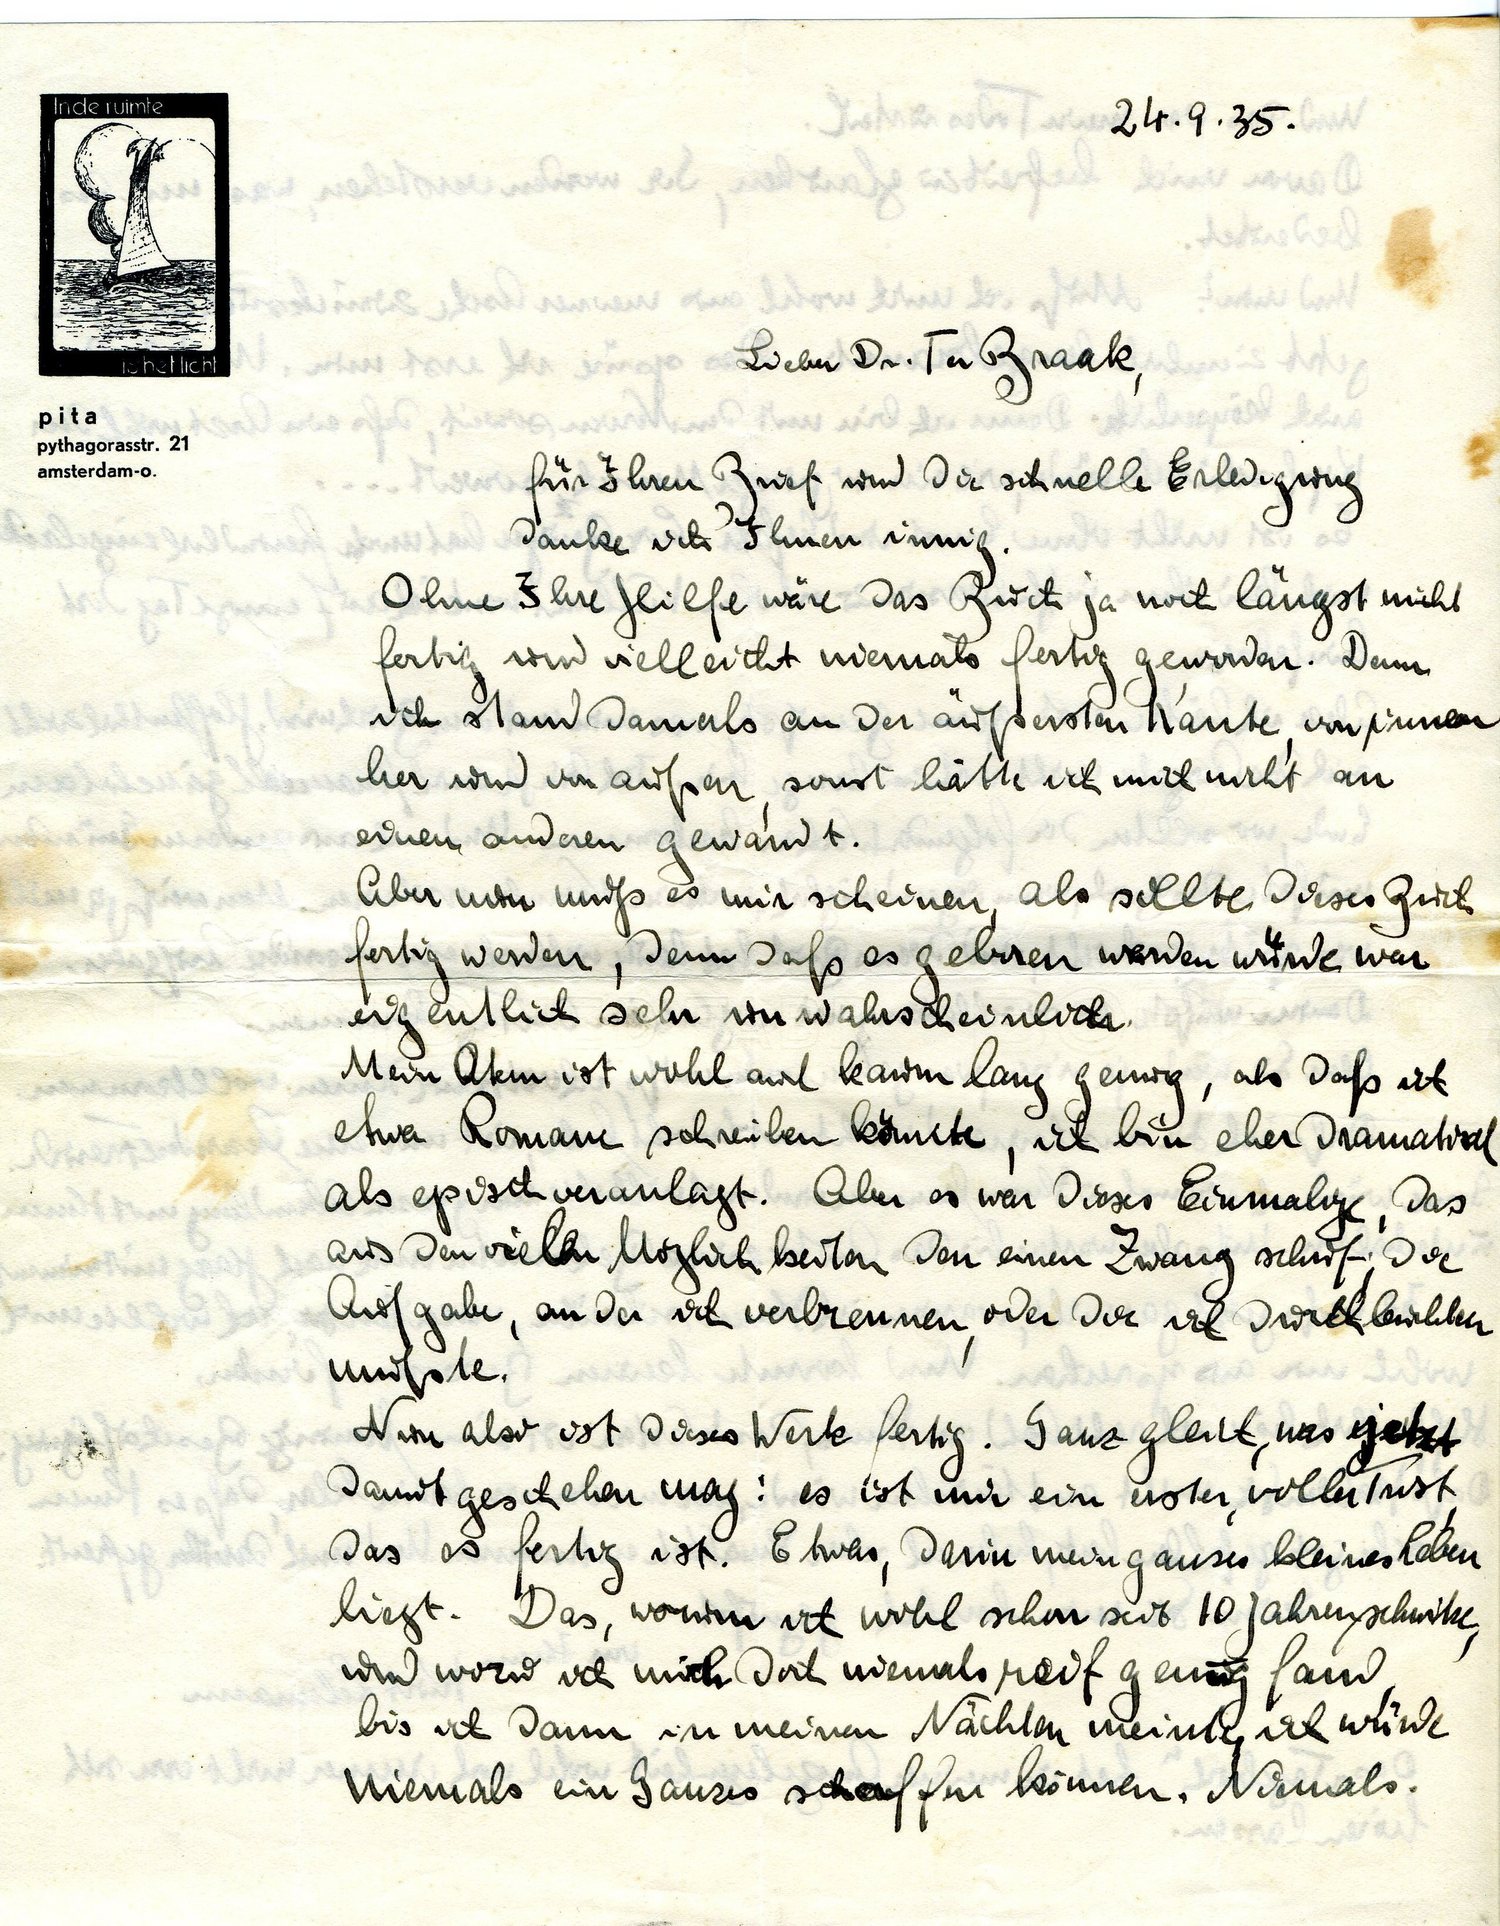 In de ruimte
is het licht
pita
pythagorasstr. 21
amsterdam-o.
24.9.35.
Lieber Dr. Ter Braak,
für Ihren Brief und die schnelle Erledigung
danke ich Ihnen innig.
Ohne Ihre Hilfe wäre das Buch ja noch längst nicht
fertig und vielleicht niemals fertig geworden. Denn
ich stand damals an der äußersten Kante, von innen
her und von außen, sonst hätte ich mich nicht an
einen anderen gewandt.
Aber nun muß es mir scheinen, als sollte dieses Buch
fertig werden, denn daß es geboren werden würde war
eigentlich sehr unwahrscheinlich.
Mein Atem ist wohl auch kaum lang genug, als daß ich
etwa Romane schreiben könnte, ich bin eher dramatisch
als episch veranlagt. Aber es war dieses Einmalige, das
aus den vielen Möglichkeiten den einen Zwang schuf, die
Aufgabe, an der ich verbrennen, oder die ich durchleuchten
mußte.
Nun also ist dieses Werk fertig. Ganz gleich, was jetzt
damit geschehen mag: es ist mir ein erster, voller Trost,
das es fertig ist. Etwas, darin mein ganzes kleines Leben
liegt. Das, worum ich wohl schon seit 10 Jahren schwitze,
und wozu ich mich doch niemals reif genug fand,
bis ich dann in meinen Nächten meinte, ich würde
niemals ein Ganzes schaffen können. Niemals.